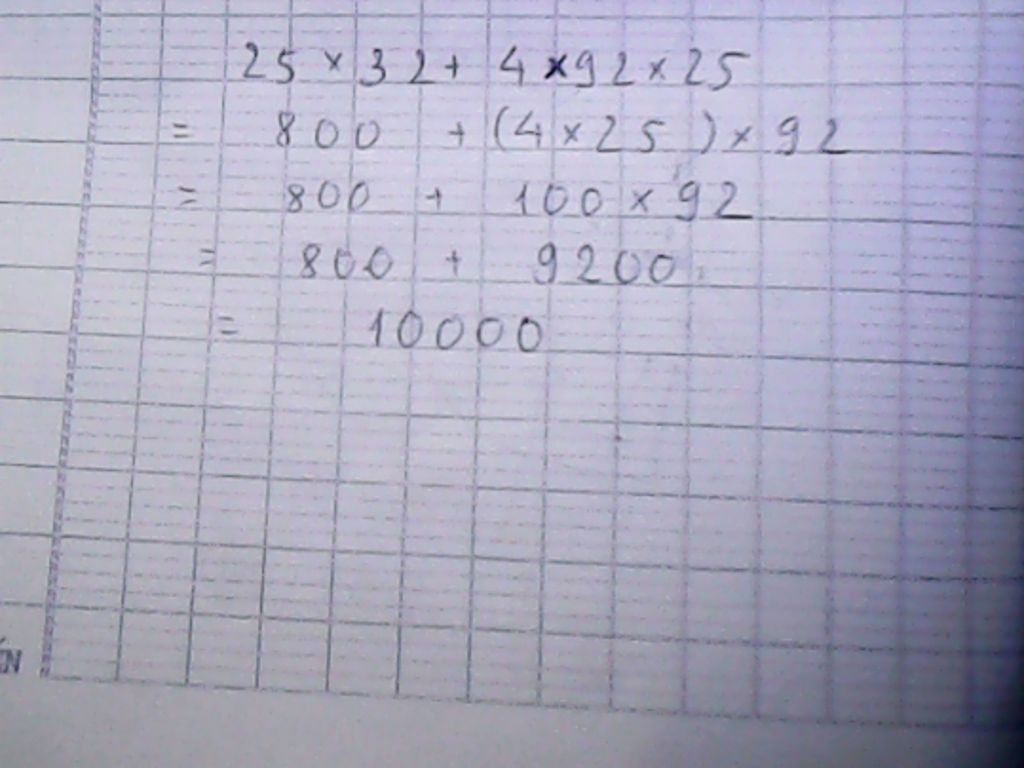 25 × 32 + 4 × 92 × 25
= 800 + (4 × 25) × 92
= 800 + 100 × 92
= 800 + 9200
= 10000